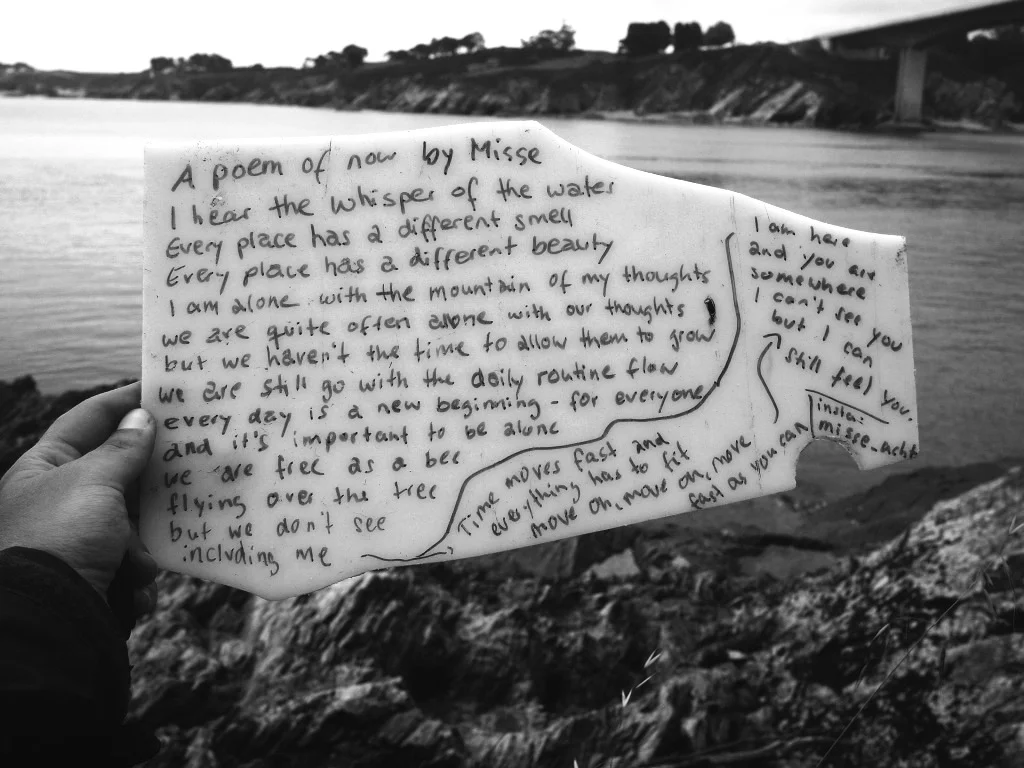 A poem of now by Misse
I hear the whisper of the water
Every place has a different smell
Every place has a different beauty
I am alone with the mountain of my thoughts
we are quite often alone with our thoughts
but we haven't the time to allow them to grow
we are still go with the daily routine flow
every day is a new beginning - for everyone
and it's important to be alone
we are free as a bee
flying over the tree
but we don't see
including me
Time moves fast and
everything has to fit
move on, move on, move
fast as you can
I am here
and you are
somewhere
I can't see you
but I can
still feel you.
insta:
misse_acht